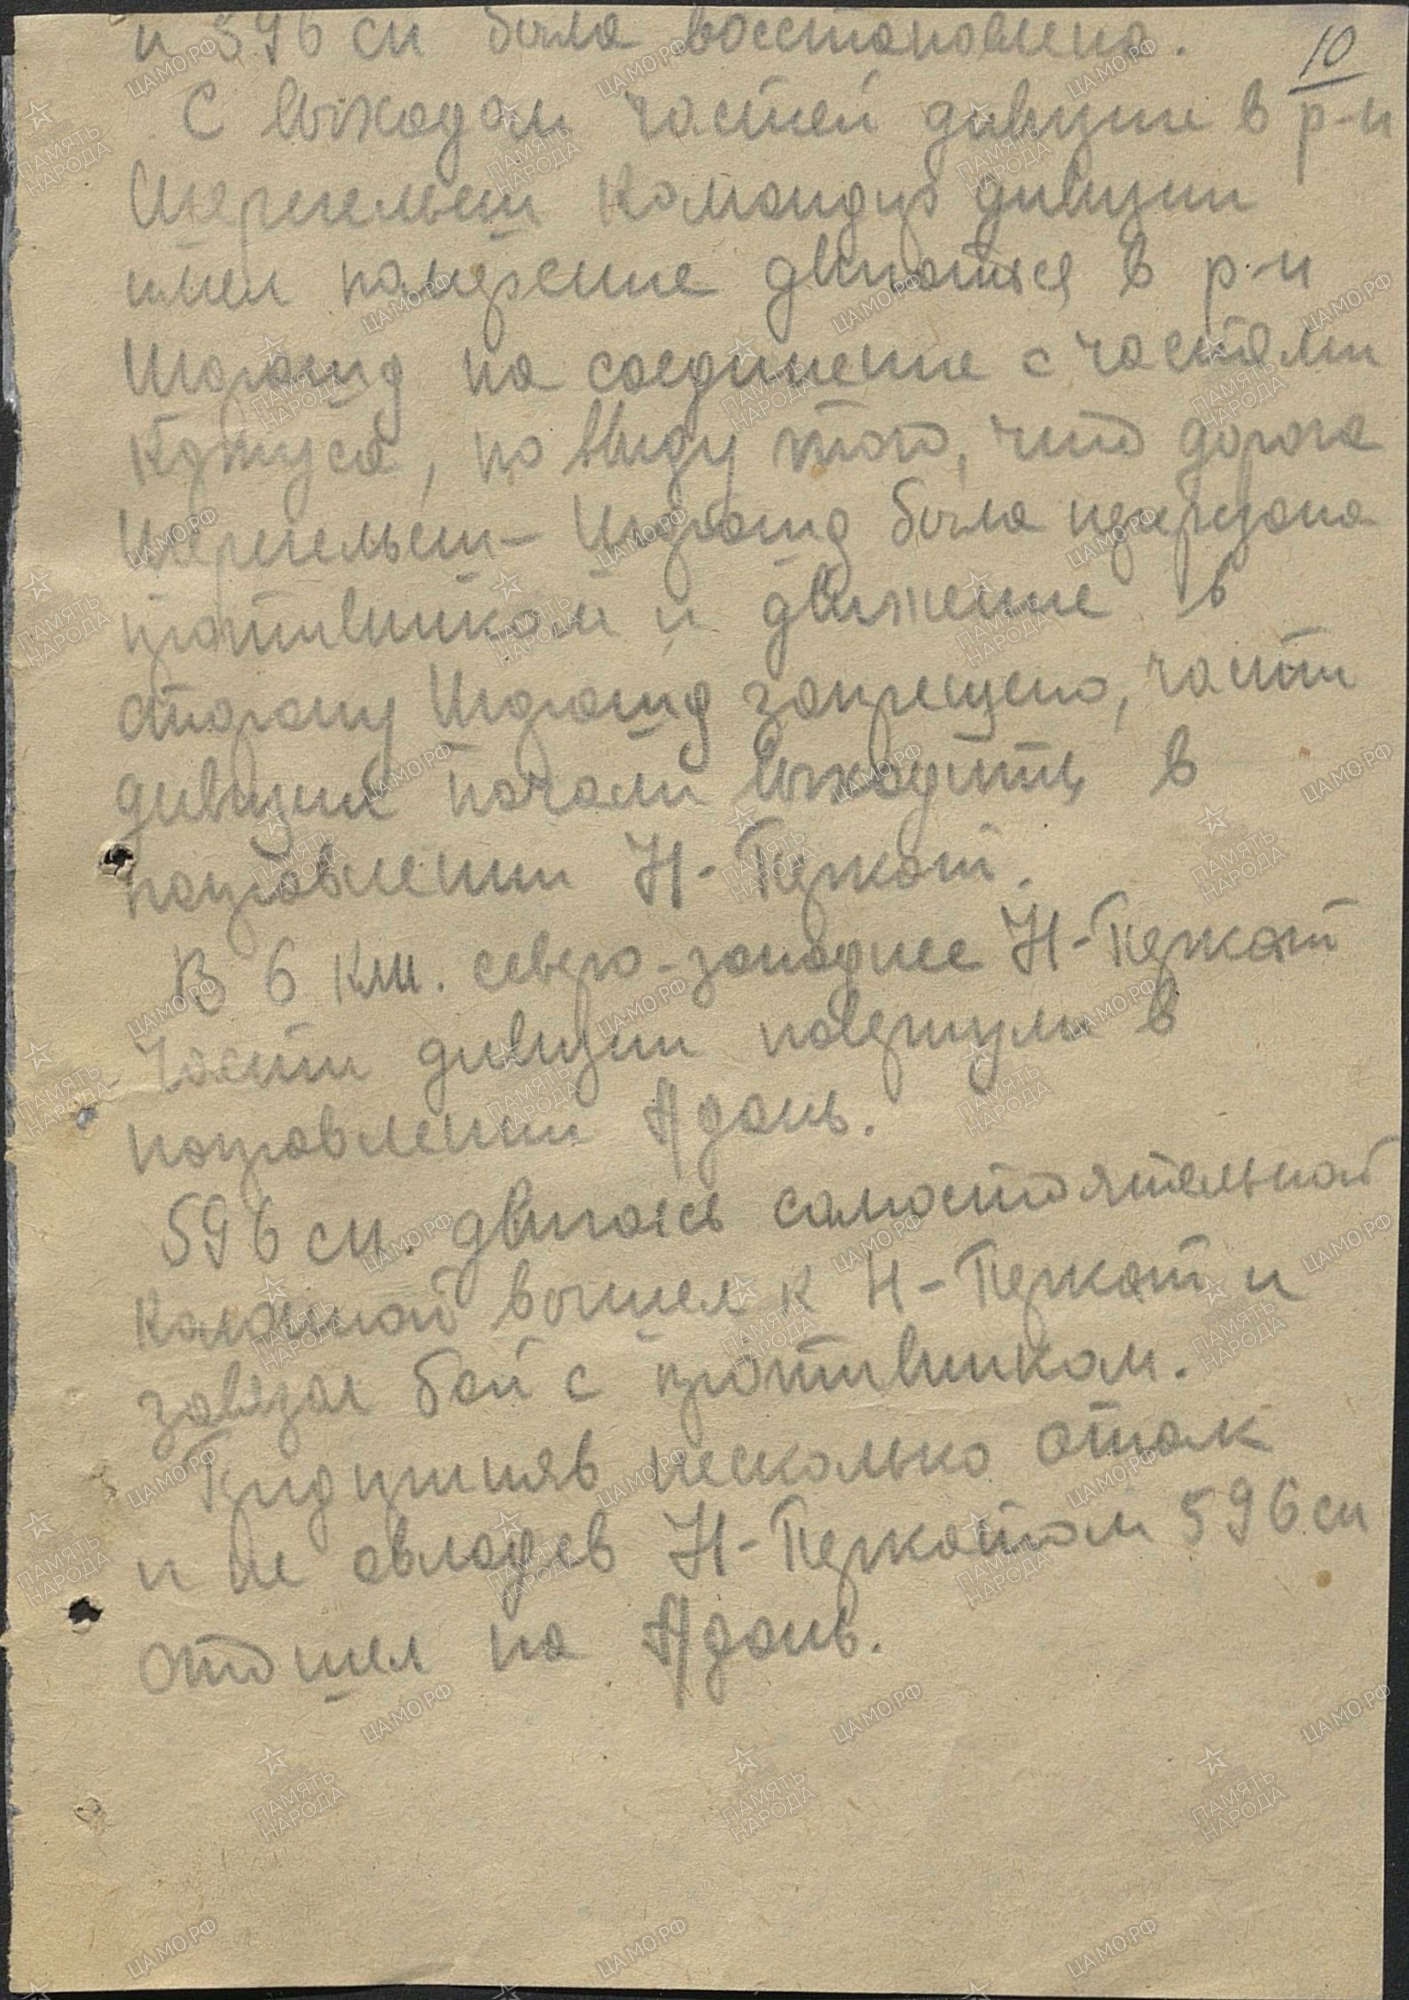 10
и 596 сп была восстановлена.
С выходом частей дивизии в р-н
Шерегельеш командир дивизии
имел намерение двигаться в р-н
Шорошд на соединение с частями
корпуса, но ввиду того, что дорога
Шерегельеш - Шорошд была перерезана
противником и движение в
сторону Шорошд запрещено, части
дивизии начали выходить в
направлении Н-Перкат.
В 6 км. северо-западнее Н-Перкат
части дивизии повернули в
направлении Адонь.
596 сп. двигаясь самостоятельной
колонной вышел к Н-Перкат и
завязал бой с противником.
Предприняв несколько атак
и не овладев Н-Перкатом 596 сп
отошел на Адонь.